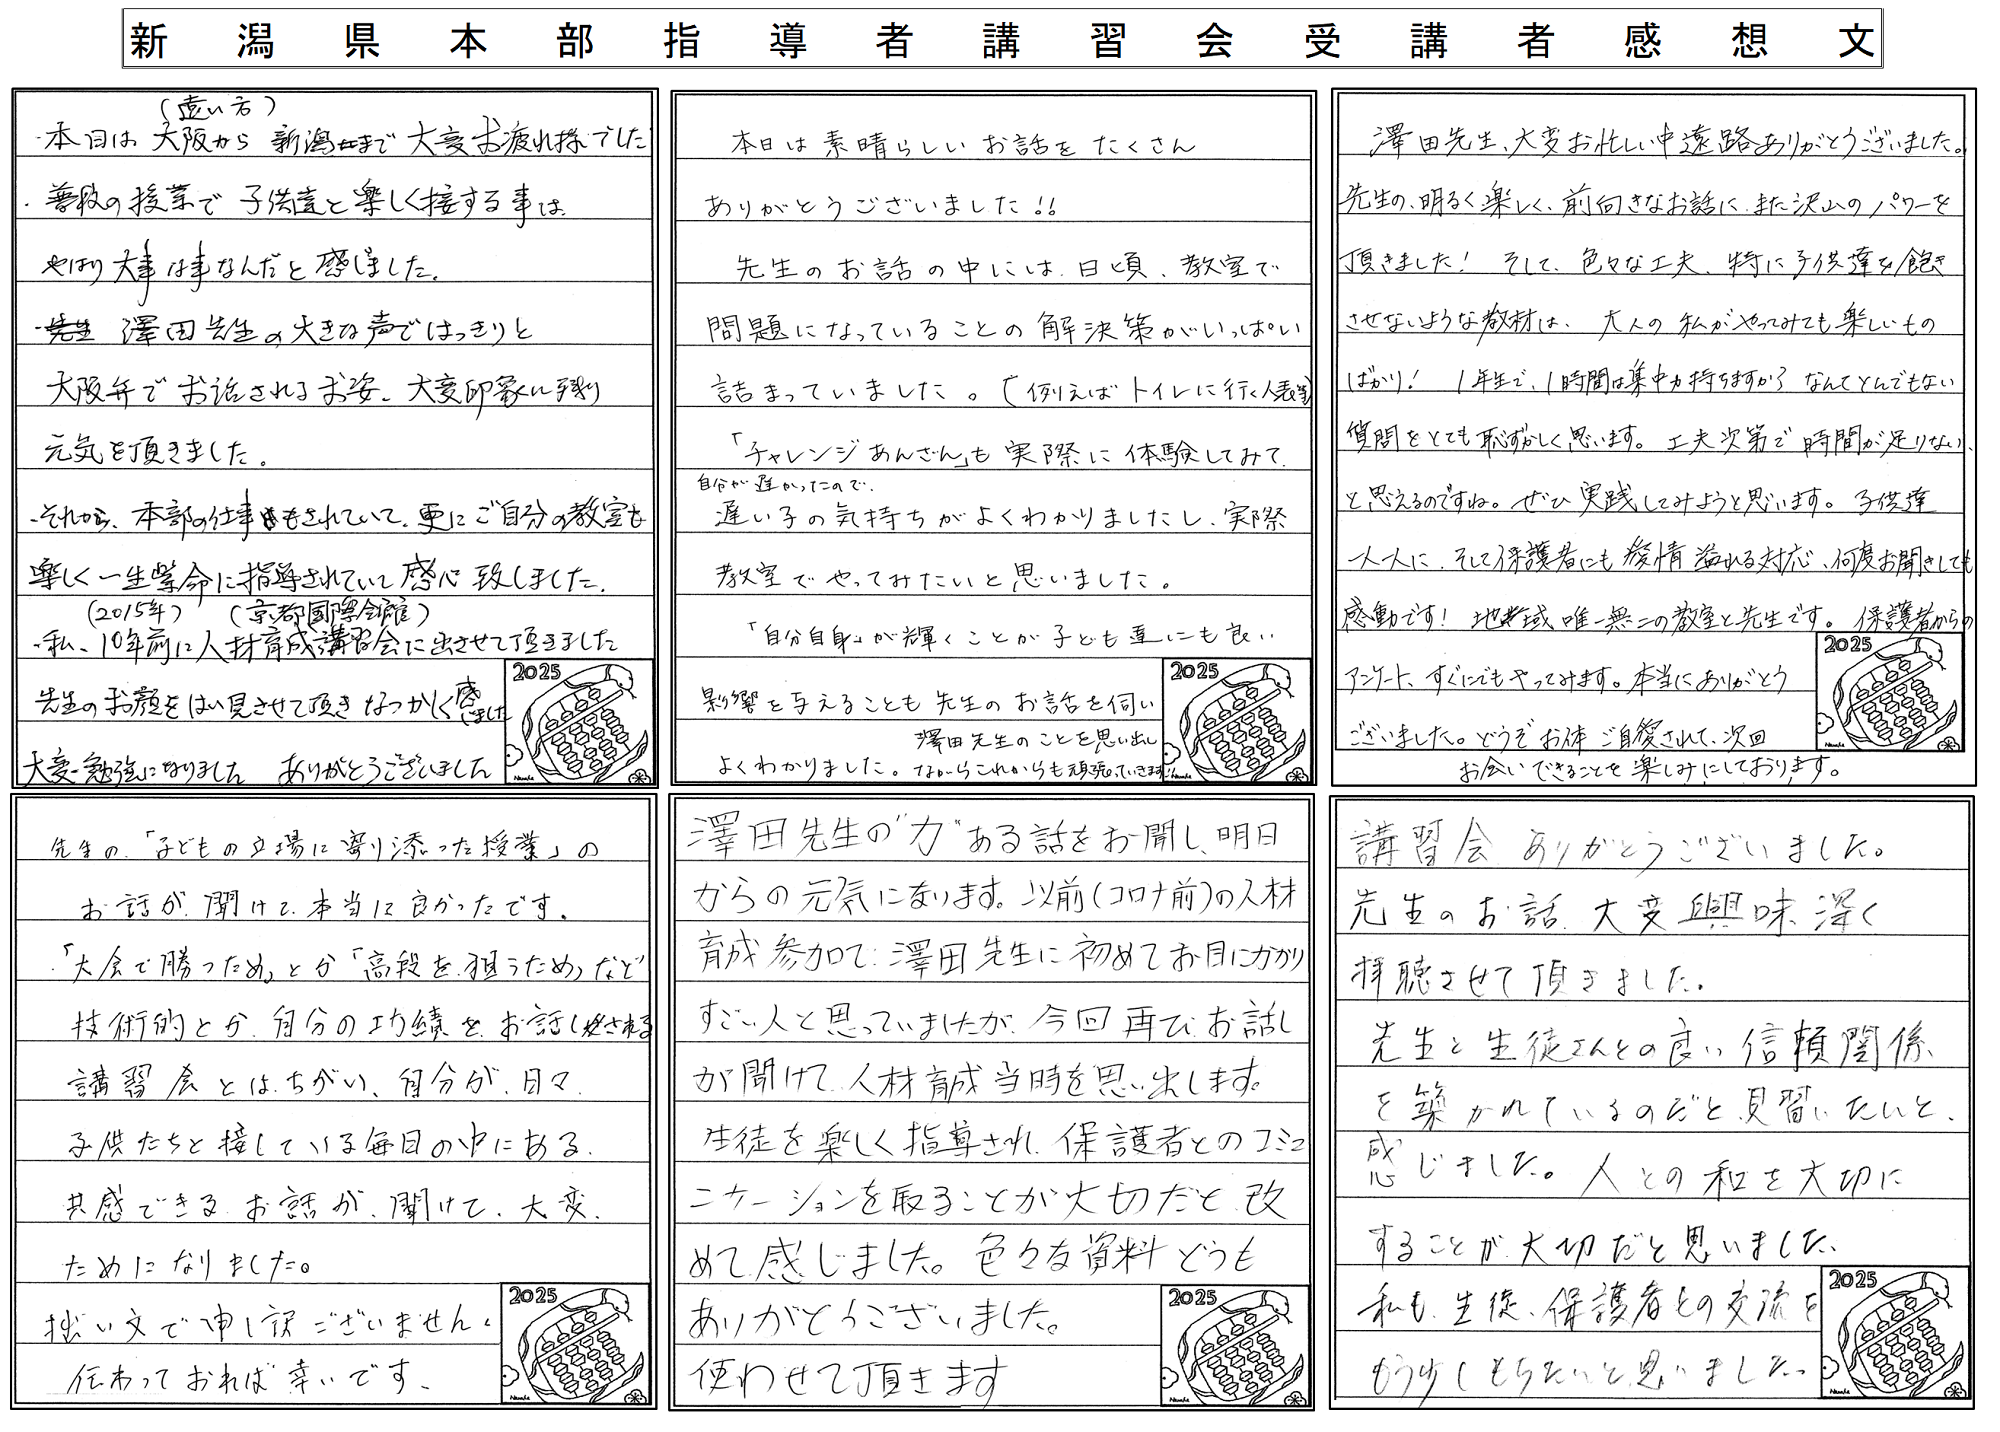 新潟県本部指導者講習会受講者感想文
(遠い方)
・本日は 大阪から 新潟まで 大変お疲れ様でした
・普段の授業で 子供達と楽しく接する事は、
やはり大事は事なんだと感じました。
・澤田先生の大きな声ではっきりと
大阪弁で お話されるお姿、大変印象に残り
元気を頂きました。
・それから、本部の仕事もされていて、更にご自分の教室も
楽しく一生懸命に指導されていて感心致しました。
(2015年) (京都国際会館)
・私、10年前に人材育成講習会に出させて頂きました
先生のお顔をはい見させて頂き なつかしく感じました
大変勉強になりました ありがとうございました
本日は素晴らしいお話をたくさん
ありがとうございました!!
先生のお話の中には、日頃、教室で
問題になっていることの解決策がいっぱい
詰まっていました。(例えばトイレに行く人表等)
「チャレンジあんざん」も実際に体験してみて、
自分が遅かったので、
遅い子の気持ちがよくわかりましたし、実際
教室でやってみたいと思いました。
「自分自身」が輝くことが子ども達にも良い
影響を与えることも先生のお話を伺い
澤田先生のことを思い出し
よくわかりました。ながらこれからも頑張っていきます!!
2025
澤田先生、大変お忙しい中遠路ありがとうございました。
先生の、明るく楽しく、前向きなお話に、また沢山のパワーを
頂きました! そして、色々な工夫、特に子供達を飽き
させないような教材は、大人の私がやってみても楽しいもの
ばかり! 1年生で、1時間は集中力持ちますか?なんてとんでもない
質問をとても恥ずかしく思います。工夫次第で時間が足りない、
と思えるのですね。ぜひ実践してみようと思います。子供達
一人一人に、そして保護者にも愛情溢れる対応、何度お聞きしても
感動です! 地域唯一無二の教室と先生です。保護者からの
アンケート、すぐにでもやってみます。本当にありがとう
ございました。どうぞお体ご自愛されて、次回
お会いできることを楽しみにしております。
2025
2025
先生の、「子どもの立場に寄り添った授業」の
お話が、聞けて、本当に良かったです。
「大会で勝つため」とか「高段を狙うため」など
技術的とか、自分の功績を、お話しされる
講習会とは、ちがい、自分が、日々、
子供たちと接している毎日の中にある、
共感できる、お話が、聞けて、大変、
ためになりました。
拙い文で申し訳ございません。
伝わっておれば幸いです。
2025
澤田先生の"力"ある話をお聞し、明日
からの元気になります。以前(コロナ前)の人材
育成参加で、澤田先生に初めてお目にかかり
すごい人と思っていましたが、今回再び、お話し
が聞けて、人材育成当時を思い出します。
生徒を楽しく指導され、保護者とのコミュ
ニケーションを取ることが大切だと、改
めて感じました。色々な資料どうも
ありがとうございました。
使わせて頂きます
2025
講習会、ありがとうございました。
先生のお話、大変興味深く
拝聴させて頂きました。
先生と生徒さんとの良い信頼関係、
を築かれているのだと、見習いたいと、
感じました。人との和を大切に
することが、大切だと思いました、
私も、生徒、保護者との交流を
もう少しもちたいと思いました。
2025